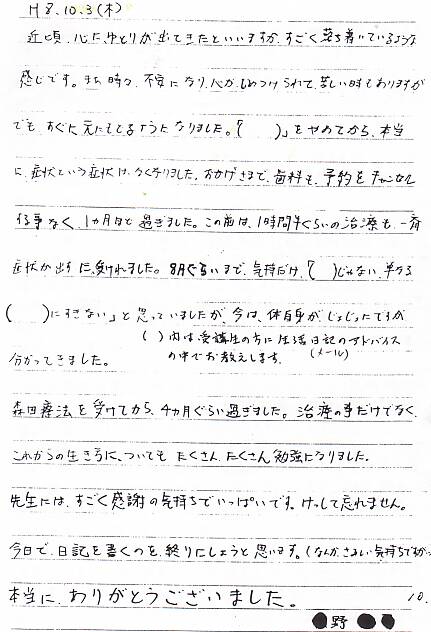 H 8.10.3(木)
近頃、心に、ゆとりが出てきたといいますか、すごく落ち着いているような
感じです。まだ時々、不安になり、心が、しめつけられて、苦しい時もありますが
でも、すぐに、元にもどるようになりました。「(　　)」をやめてから、本当
に、症状という症状は、なくなりました。おかげさまで、歯科も、予約をキャンセルす
る事なく、1ヵ月ほど過ぎました。この前は、1時間半ぐらいの治療も、一斉
症状が出ずに、受けれました。8月ぐらいまで、気持だけ、「(　　)じゃない、単なる
(　　)にすぎない」と思っていましたが、今は、体自身が、じょじょにですが
分かってきました。
(　)内は受講生の方に生活日記のアドバイス
の中でお教えします。(メール)
森田療法を受けてから、4ヵ月ぐらい過ぎました。治療の事だけでなく、
これからの生き方に、ついても、たくさん、たくさん勉強になりました。
先生には、すごく感謝の気持ちでいっぱいです。けっして忘れません。
今日で、日記を書くのを、終りにしようと思います。(なんか、さみしい気持ちですが
本当に、ありがとうございました。
10.
野